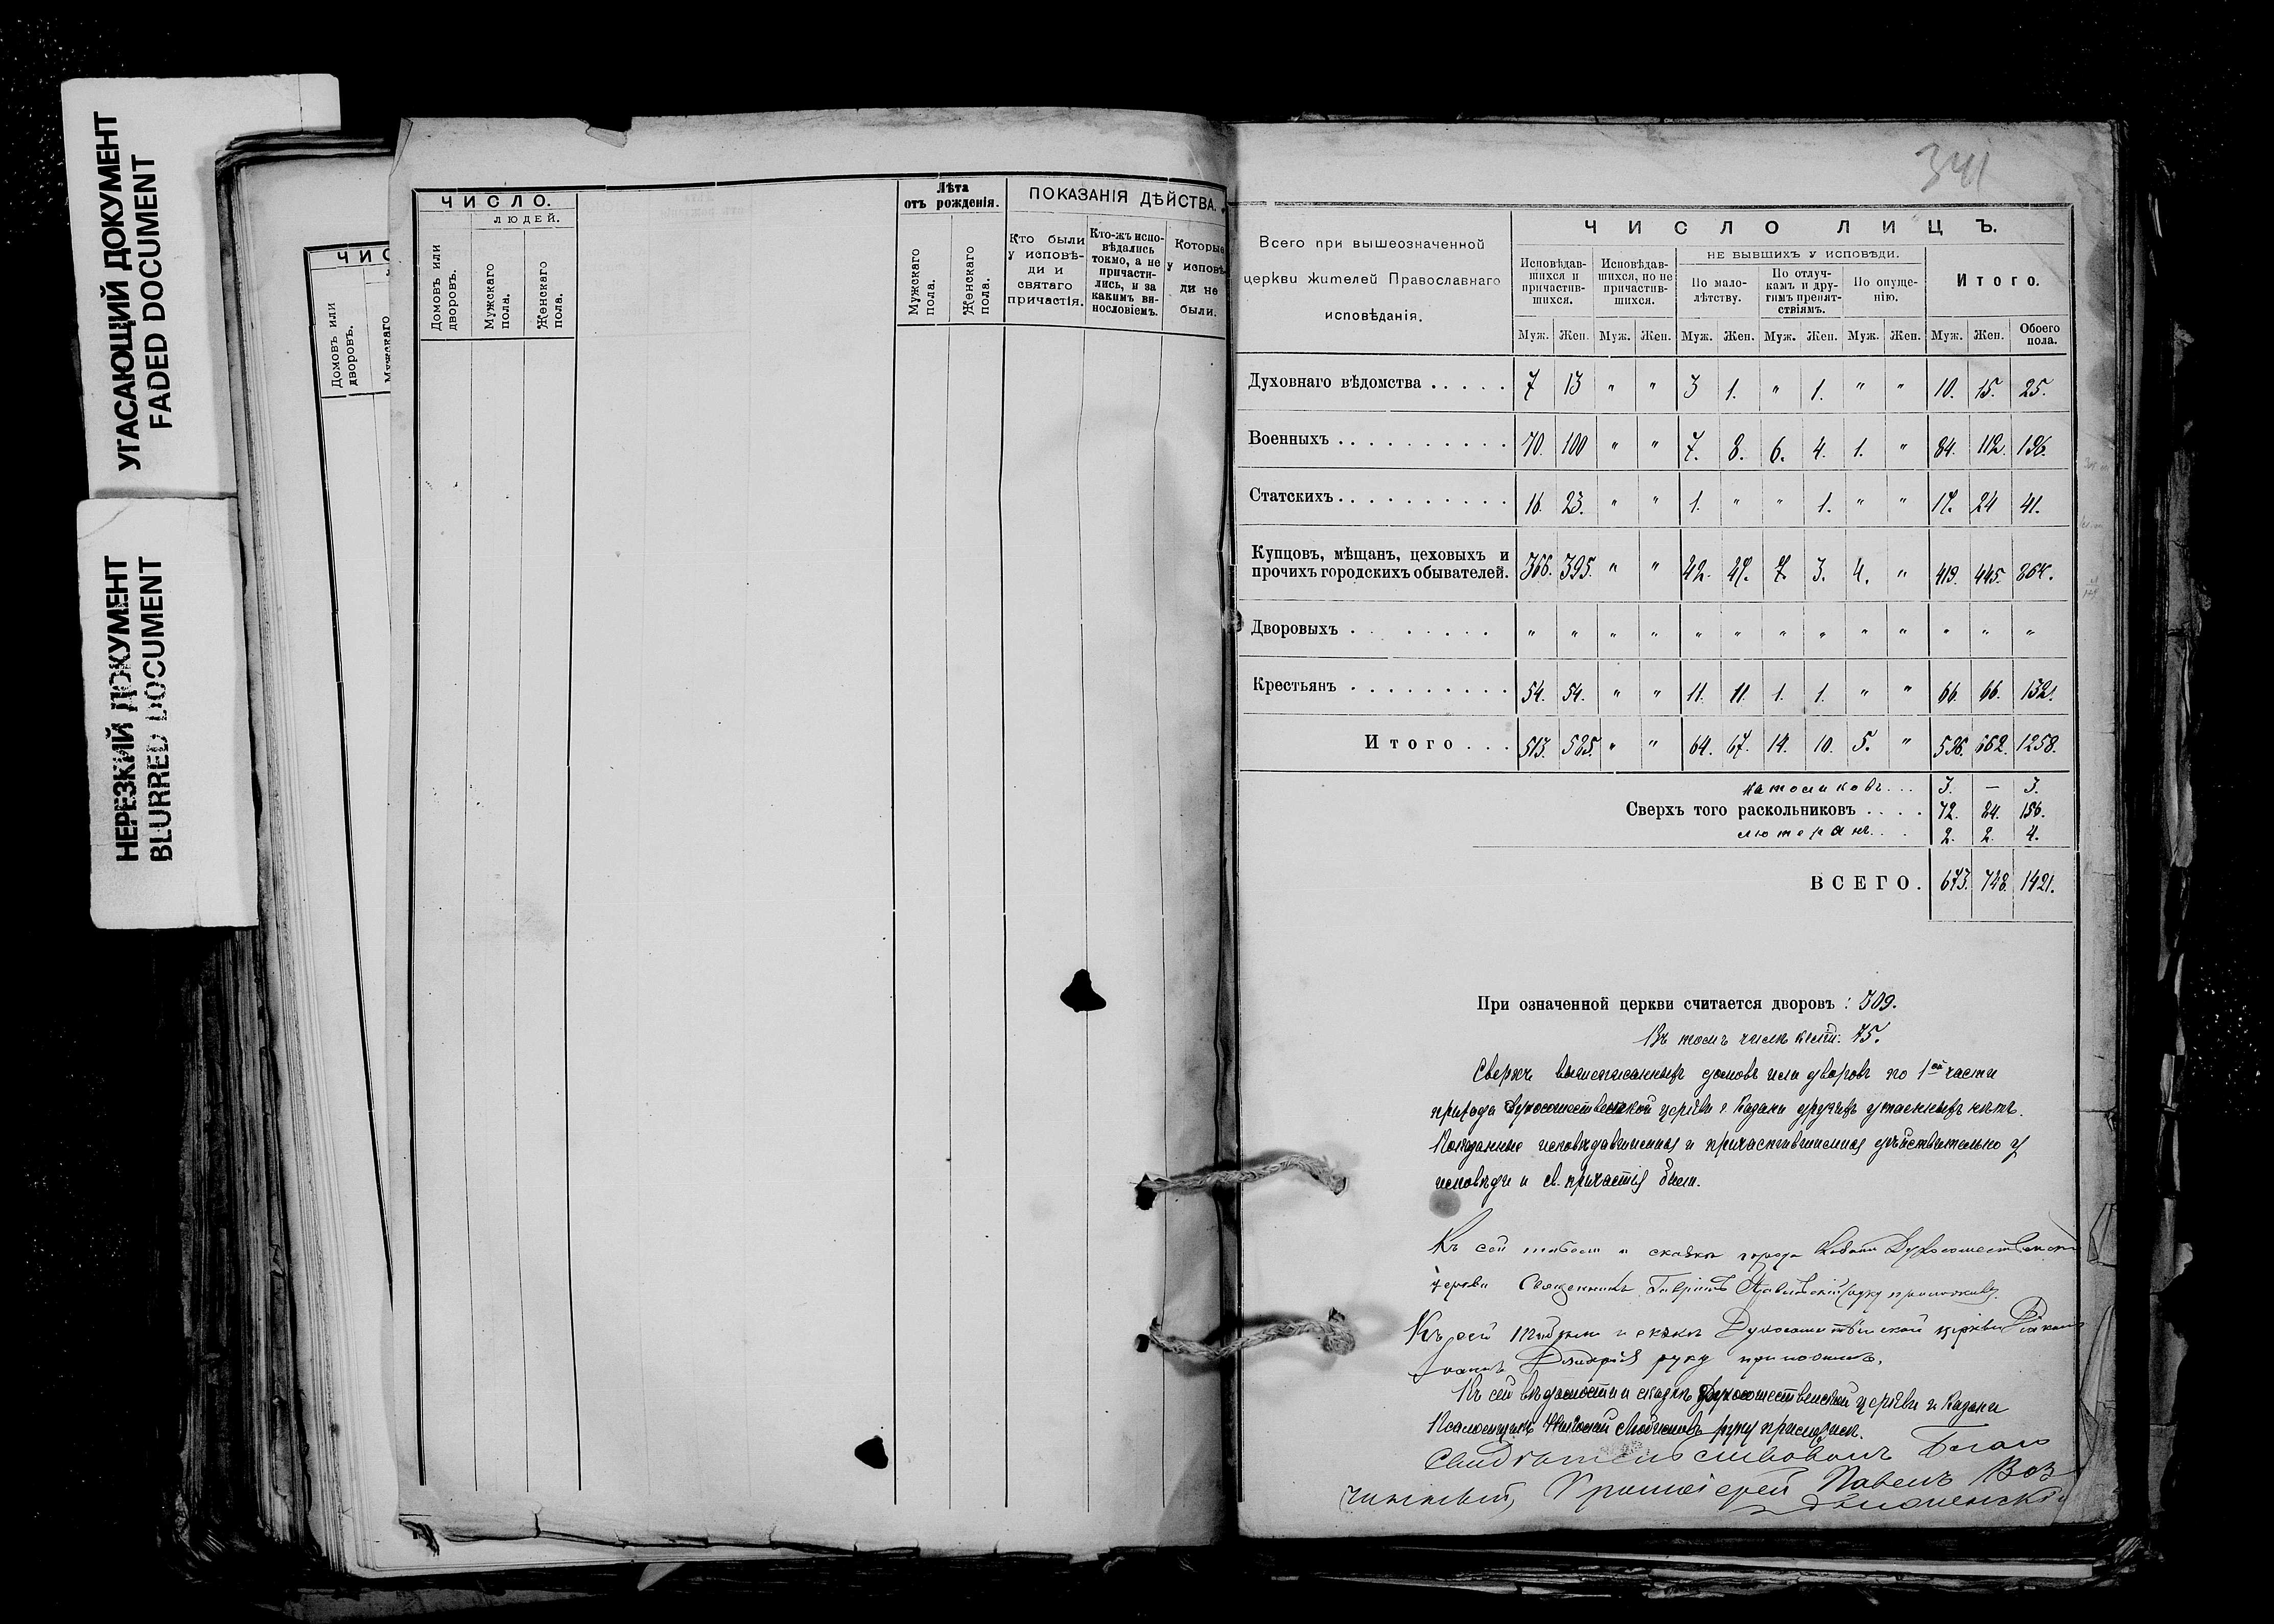 УГАСАЮЩИЙ ДОКУМЕНТ
FADED DOCUMENT
НЕРЕЗКИЙ ДОКУМЕНТ
BLURRED DOCUMENT
ЧИС
Домовъ или дворовъ.
Мужскаго
ЧИСЛО.
ЛЮДЕЙ.
Домовъ или дворовъ.
Мужскаго пола.
Женскаго пола.
Лѣта
отъ рожденія.
Мужскаго пола.
Женскаго пола.
ПОКАЗАНІЯ ДѢЙСТВА.
Кто были у исповѣди и святаго причастія.
Кто-жъ исповѣдались токмо, а не причастились, и за какимъ винословіемъ.
Которые у исповѣди не были.
341
Всего при вышеозначенной
церкви жителей Православнаго
исповѣданія.
ЧИСЛО ЛИЦЪ.
Исповѣдавшихся и причастившихся.
Исповѣдавшихся, но не причастившихся.
НЕ БЫВШИХЪ У ИСПОВѢДИ.
По малолѣтству.
По отлучкамъ и другимъ препятствіямъ.
По опущенію.
Итого.
Муж. Жен. Муж. Жен. Муж. Жен. Муж. Жен. Муж. Жен. Муж. Жен. Обоего пола.
Духовнаго вѣдомства ..... 7 13 " " 3 1. " 1. " " 10. 15. 25.
Военныхъ .......... 70. 100 " " 7. 8. 6. 4. 1. " 84. 112. 196.
Статскихъ .......... 16. 23. " " 1. " " 1. " " 17. 24 41.
Купцовъ, мѣщанъ, цеховыхъ и
прочихъ городскихъ обывателей. 366. 395. " " 42. 47. 7. 3. 4. " 419. 445. 864.
Дворовыхъ ........ " " " " " " " " " " " " "
Крестьянъ ......... 54. 54. " " 11. 11. 1. 1. " " 66. 66. 132.
Итого ... 513. 585. " " 64. 67. 14. 10. 5. " 596. 662. 1258.
католиковъ ... 3. — 3.
Сверхъ того раскольниковъ .... 72. 84. 156.
лютеранъ ... 2. 2. 4.
ВСЕГО. 673. 748. 1421.
При означенной церкви считается дворовъ: 309.
Въ томъ числѣ 75.
Сверхъ вышеписанныхъ домовъ или дворовъ по 1ой части
прихода Духосошественской церкви г. Казани другихъ утаенныхъ нѣтъ.
Показанные исповѣдавшимися и причастившимися дѣйствительно у
исповѣди и св. причастія были.
Къ сей и сказкѣ города Казани Духосошественской
церкви Священникъ Гавріилъ руку приложилъ.
Къ сей и сказкѣ Духосошественской церкви Діаконъ
руку приложилъ.
Къ сей вѣдомости и сказкѣ Духосошественской церкви г. Казани
Псаломщикъ руку приложилъ.
Свидѣтельствовалъ Благо
чинный, Протоіерей Павелъ